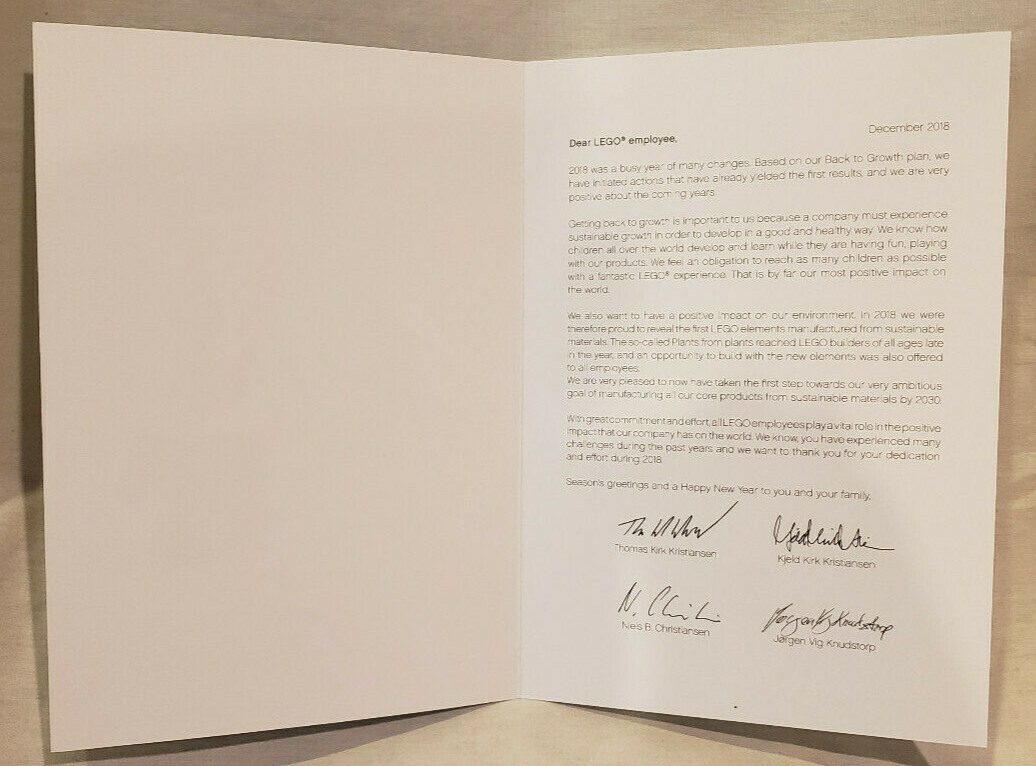 December 2018
Dear LEGO® employee,
2018 was a busy year of many changes. Based on our Back to Growth plan, we
have initiated actions that have already yielded the first results, and we are very
positive about the coming years.
Getting back to growth is important to us because a company must experience
sustainable growth in order to develop in a good and healthy way. We know how
children all over the world develop and learn while they are having fun, playing
with our products. We feel an obligation to reach as many children as possible
with a fantastic LEGO® experience. That is by far our most positive impact on
the world.
We also want to have a positive impact on our environment. In 2018 we were
therefore proud to reveal the first LEGO elements manufactured from sustainable
materials. The so-called Plants from plants reached LEGO builders of all ages late
in the year, and an opportunity to build with the new elements was also offered
to all employees.
We are very pleased to now have taken the first step towards our very ambitious
goal of manufacturing all our core products from sustainable materials by 2030.
With great commitment and effort, all LEGO employees play a vital role in the positive
impact that our company has on the world. We know, you have experienced many
challenges during the past years and we want to thank you for your dedication
and effort during 2018.
Season's greetings and a Happy New Year to you and your family,
Thomas Kirk Kristiansen
Kjeld Kirk Kristiansen
N. Christiansen
Jørgen Vig Knudstorp
Niels B. Christiansen
Jørgen Vig Knudstorp